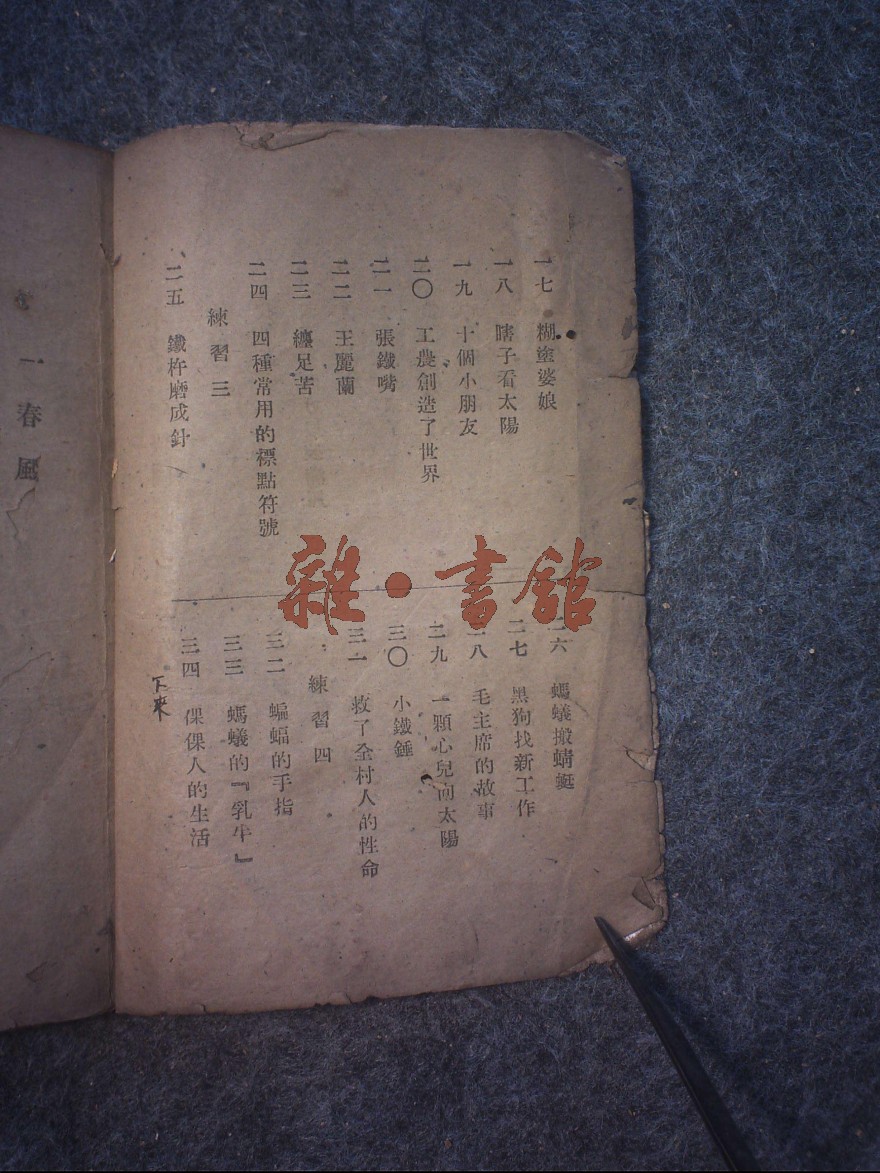 一七 糊塗婆娘
一八 瞎子看太陽
一九 十個小朋友
二〇 工農創造了世界
二一 張鐵嘴
二二 王麗蘭
二三 纏足苦
二四 四種常用的標點符號
練習三
二五 鐵杵磨成針
二六 螞蟻搬蜻蜓
二七 黑狗找新工作
二八 毛主席的故事
二九 一顆心兒向太陽
三〇 小鐵錘
三一 救了全村人的性命
練習四
三二 蝙蝠的手指
三三 螞蟻的『乳牛』
三四 倮倮人的生活
下來
一 春風
雜·書館